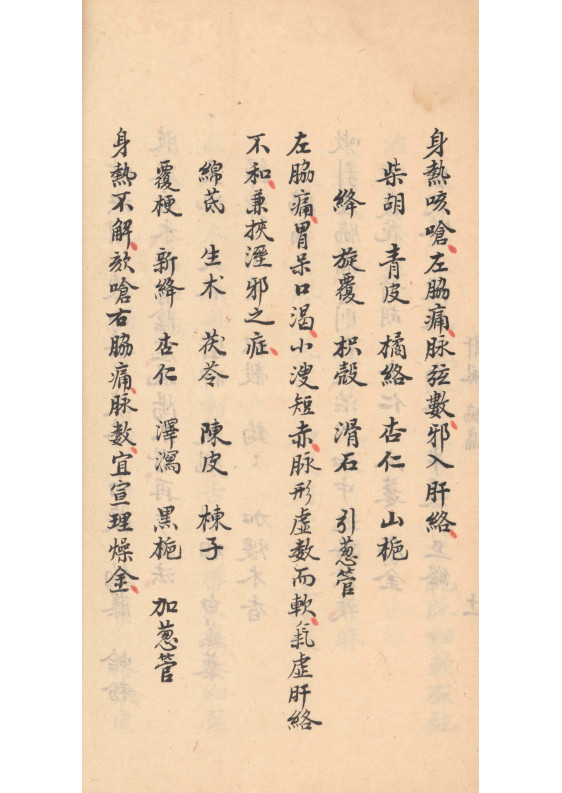 身熱咳嗆左脇痛脉弦數邪入肝絡
柴胡 青皮 橘絡 杏仁 山梔
絳 旋覆 枳殼 滑石 引蔥管
左脇痛胃呆口渴小溲短赤脉形虛數而軟氣虛肝絡
不和兼挾溼邪之症
綿芪 生术 茯苓 陳皮 楝子
覆梗 新絳 杏仁 澤瀉 黑梔 加蔥管
身熱不解欬嗆右脇痛脉數宜宣理燥金